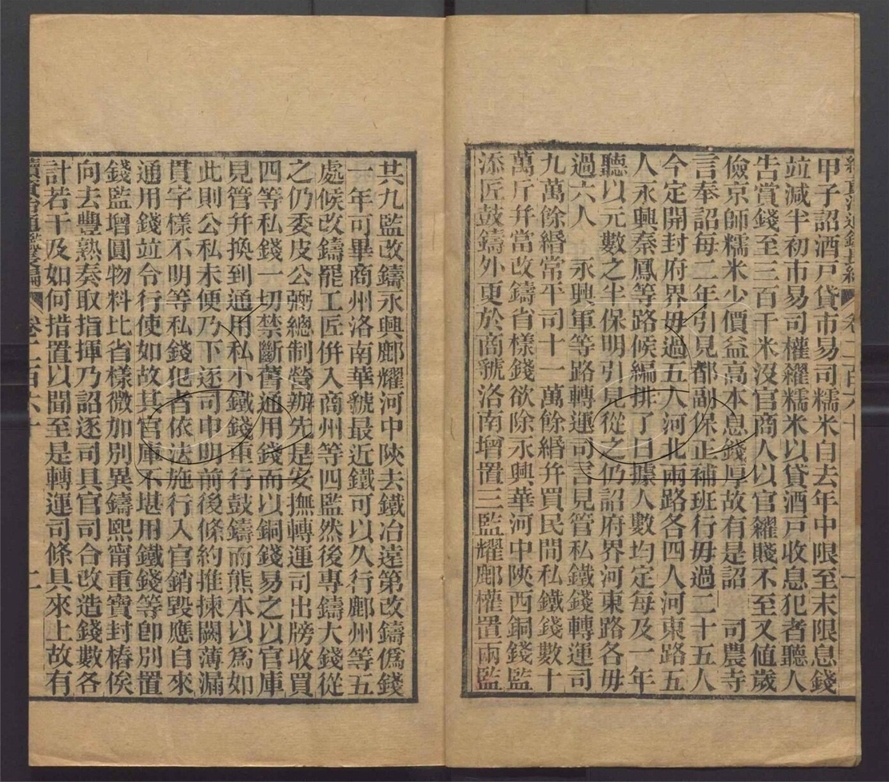 續資治通鑑長編 卷二百六十 一
甲子詔酒戸貸市易司糯米自去年中限至末限息錢
竝減半初市易司權糴糯米以貸酒戸收息犯者聽人
吿賞錢至三百千米沒官商人以官糴賤不至又値歲
儉京師糯米少價益高本息錢厚故有是詔 司農寺
言奉詔每二年引見都副保正補班行毋過二十五人
今定開封府界毋過五人河北兩路各四人河東路五
人永興秦鳳等路候編排了日據人數均定每及一年
聽以元數之半保明引見從之仍詔府界河東路各毋
過六人 永興軍等路轉運司言見管私鐵錢轉運司
九萬餘緡常平司十一萬餘緡幷買民間私鐵錢數十
萬斤幷當改鑄省樣錢欲除永興華河中陝西銅錢監
添匠鼓鑄外更於商虢洛南增置三監耀鄜權置兩監
其九監改鑄永興鄜耀河中陝去鐵冶遠第改鑄僞錢
一年可畢商州洛南華虢最近鐵可以久行鄜州等五
處候改鑄罷工匠倂入商州等四監然後專鑄大錢從
之仍委皮公弼總制營辦先是安撫轉運司出牓收買
四等私錢一切禁斷舊通用錢而以銅錢易之以官庫
見管幷換到通用私小鐵錢重行鼓鑄而熊本以爲如
此則公私未便乃下逐司申明前後條約推揀闕薄漏
貫字樣不明等私錢犯者依法施行入官銷毀應自來
通用錢竝令行使如故其官庫不堪用鐵錢等卽別置
錢監增圓物料比省樣微加別異鑄熙甯重寶封樁俟
向去豐熟奏取指揮乃詔逐司具官司合改造錢數各
計若干及如何措置以聞至是轉運司條具來上故有
續資治通鑑長編 卷二百六十 二